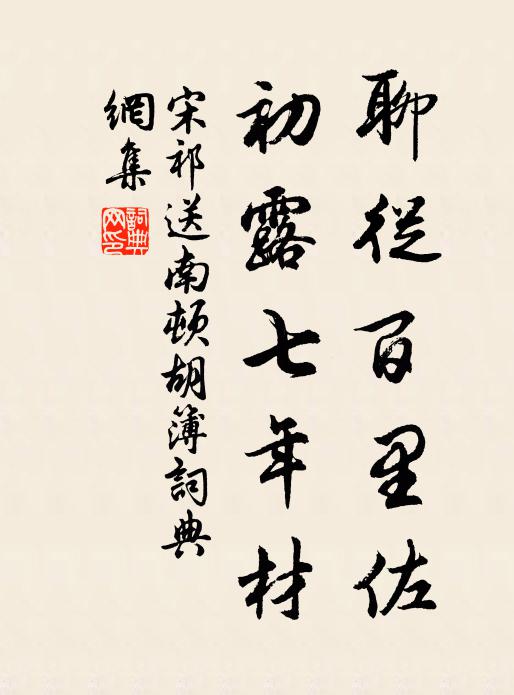 聊從百里佐
初露七年材
宋祁送南頓胡簿詞典
網集
詞典網印